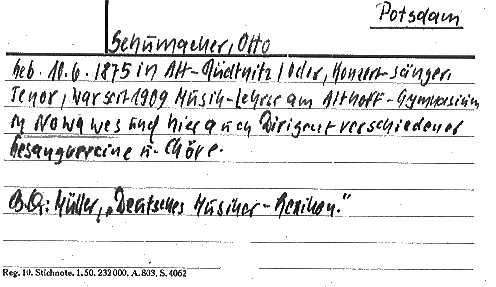 Potsdam
Schumacher, Otto
geb. 10.6.1875 in Alt-Rüdnitz/Oder, Konzert-Sänger,
Tenor, war seit 1909 Musik-Lehrer am Althoff-Gymnasium
in Nowawes und hier auch Dirigent verschiedener
Gesangvereine u. Chöre.
B.Q.: Müller, „Deutsches Musiker-Lexikon."
Reg. 10. Stichnote. 1. 50. 232 000. A. 803. S. 4062